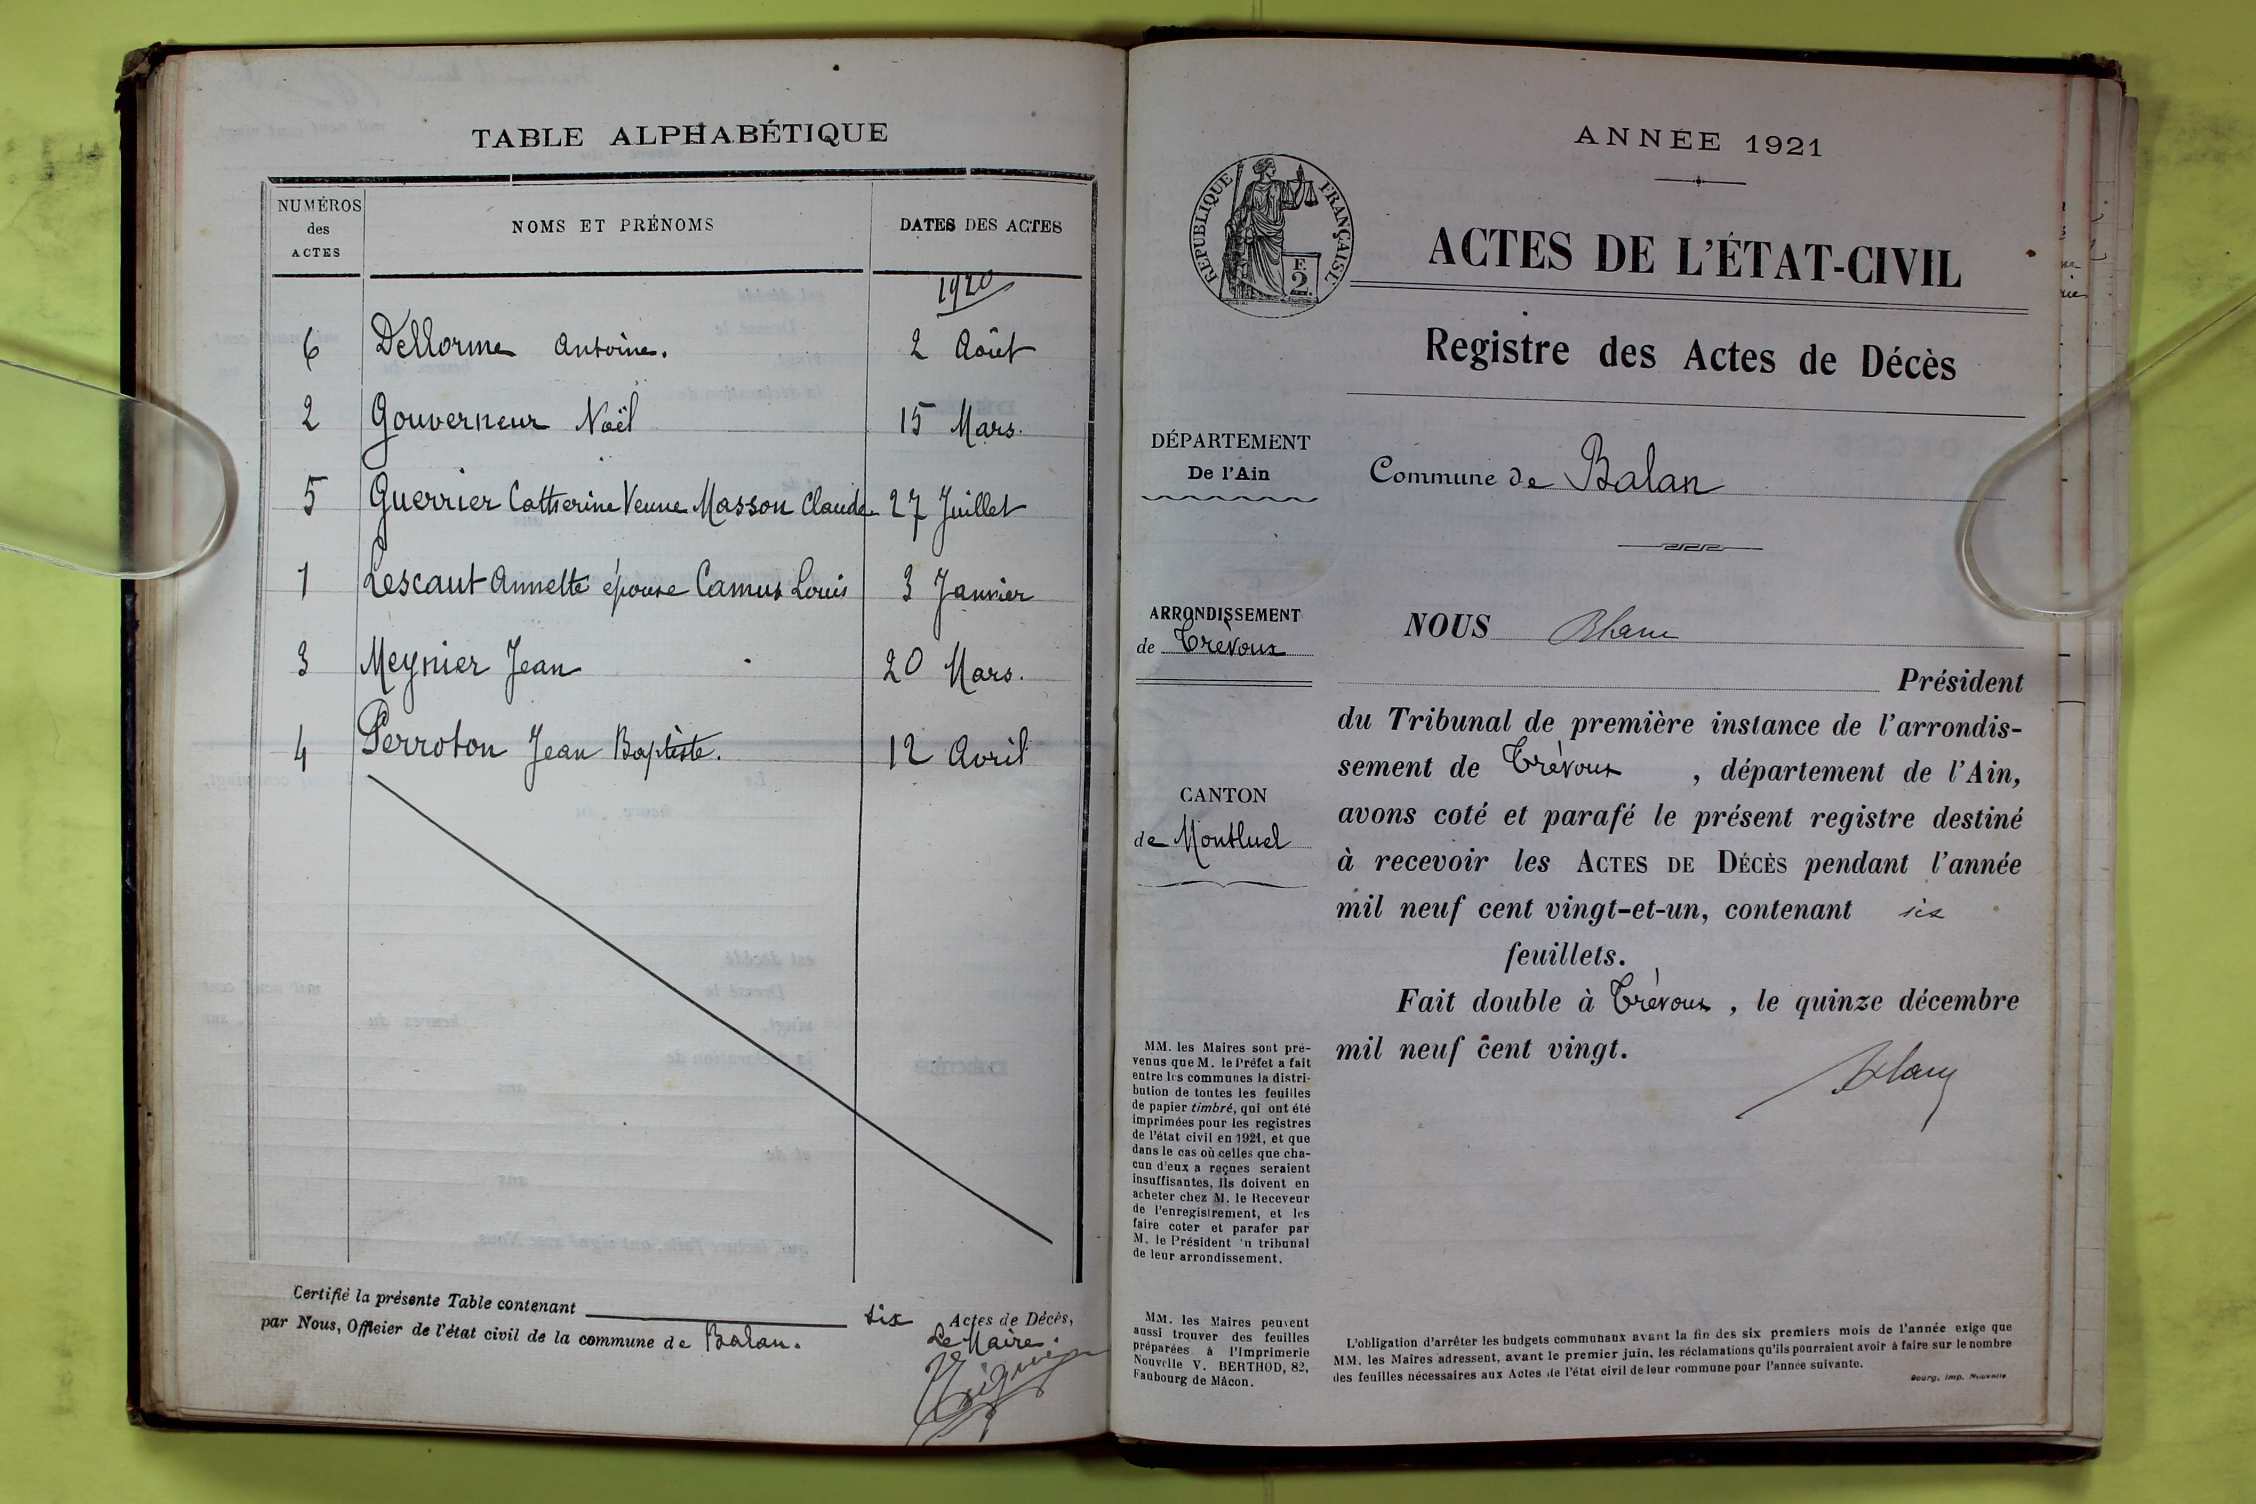 TABLE ALPHABÉTIQUE
NUMÉROS
des
ACTES
NOMS ET PRÉNOMS
DATES DES ACTES
1920
6 Dellorme Antoine. 2 Août
2 Gouverneur Noël 15 Mars.
5 Guerrier Catherine Veuve Masson Claude 27 Juillet
1 Lescaut Annette épouse Camus Louis 3 Janvier
3 Meynier Jean 20 Mars.
4 Perroton Jean Baptiste. 12 Avril
Certifié la présente Table contenant six Actes de Décès,
par Nous, Officier de l'état civil de la commune de Balan.
Le Maire.
ANNÉE 1921
RÉPUBLIQUE FRANÇAISE
F.
2.
ACTES DE L'ÉTAT-CIVIL
Registre des Actes de Décès
DÉPARTEMENT
De l'Ain
Commune de Balan
ARRONDISSEMENT
de Trévoux
CANTON
de Montluel
NOUS
Président
du Tribunal de première instance de l'arrondis-
sement de Trévoux , département de l'Ain,
avons coté et parafé le présent registre destiné
à recevoir les ACTES DE DÉCÈS pendant l'année
mil neuf cent vingt-et-un, contenant six
feuillets.
Fait double à Trévoux , le quinze décembre
mil neuf cent vingt.
MM. les Maires sont pré-
venus que M. le Préfet a fait
entre les communes la distri-
bution de toutes les feuilles
de papier timbré, qui ont été
imprimées pour les registres
de l'état civil en 1921, et que
dans le cas où celles que cha-
cun d'eux a reçues seraient
insuffisantes, ils doivent en
acheter chez M. le Receveur
de l'enregistrement, et les
faire coter et parafer par
M. le Président du tribunal
de leur arrondissement.
MM. les Maires peuvent
aussi trouver des feuilles
préparées à l'Imprimerie
Nouvelle V. BERTHOD, 82,
Faubourg de Mâcon.
L'obligation d'arrêter les budgets communaux avant la fin des six premiers mois de l'année exige que
MM. les Maires adressent, avant le premier juin, les réclamations qu'ils pourraient avoir à faire sur le nombre
des feuilles nécessaires aux Actes de l'état civil de leur commune pour l'année suivante.
Bourg, Imp. Nouvelle